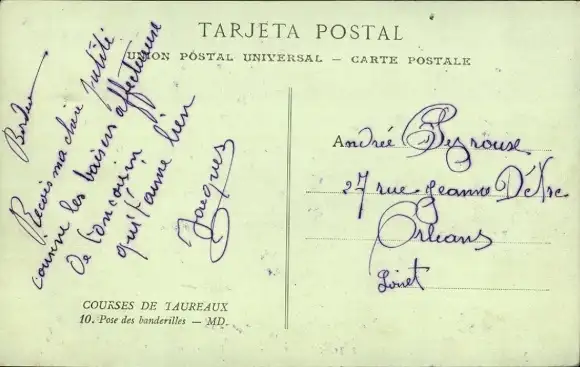 TARJETA POSTAL
UNION POSTAL UNIVERSAL — CARTE POSTALE
Reçois ma chère petite
cousine les baisers affectueux
De ton cousin
qui t'aime bien
Jacques
André Peyrouse
27 rue Jeanne D'Arc
Orléans
Loiret
COURSES DE TAUREAUX
10. Pose des banderilles — MD.